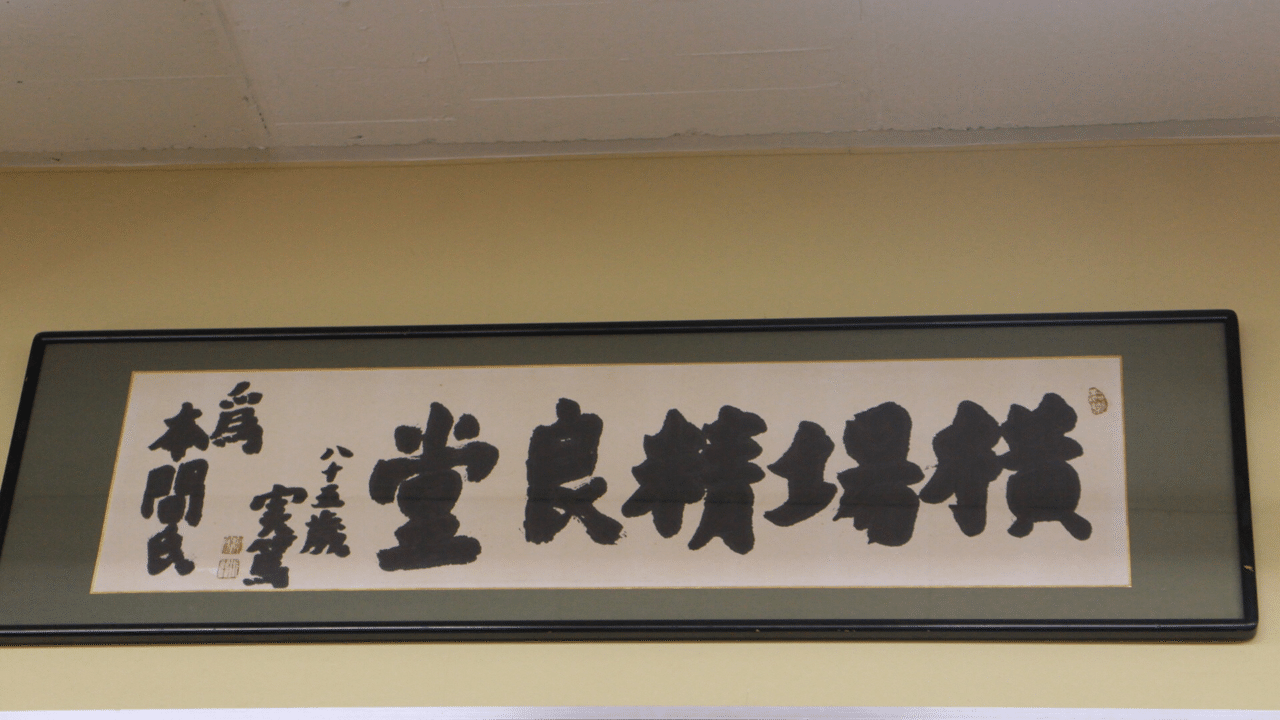 横場精良堂
八十五歳
実篤
為
本間氏